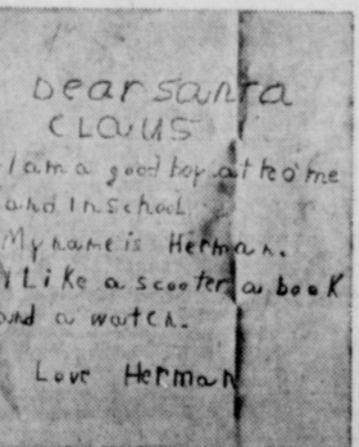 Dear Santa
CLAUS
I am a good boy at home
and in school
My name is Herman.
I Like a scooter a book
and a watch.
Love Herman